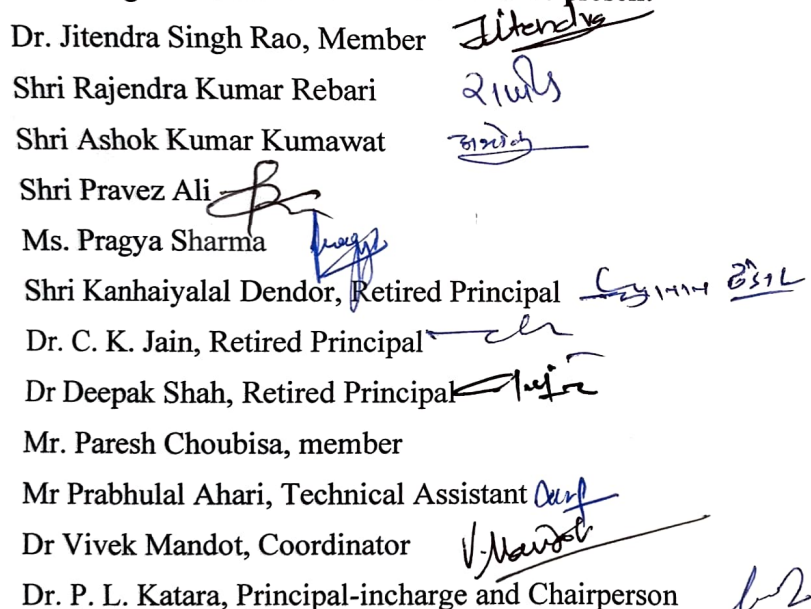 Dr. Jitendra Singh Rao, Member Jitendra
Shri Rajendra Kumar Rebari
Shri Ashok Kumar Kumawat
Shri Pravez Ali
Ms. Pragya Sharma Pragya
Shri Kanhaiyalal Dendor, Retired Principal
Dr. C. K. Jain, Retired Principal
Dr Deepak Shah, Retired Principal
Mr. Paresh Choubisa, member
Mr Prabhulal Ahari, Technical Assistant
Dr Vivek Mandot, Coordinator V. Mandot
Dr. P. L. Katara, Principal-incharge and Chairperson